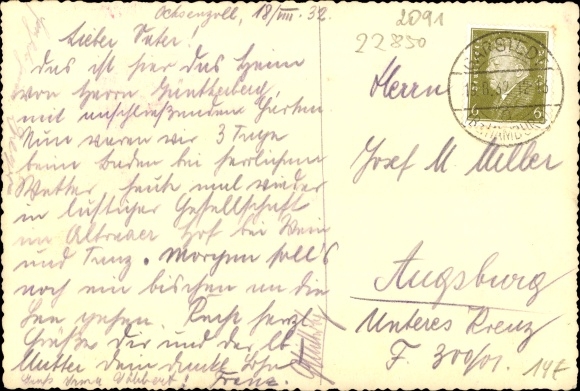 Ochsenzoll, 18/VIII. 32.
Lieber Vater!
Das ist hier das Heim
von Herrn Günttenberg,
mit anschließendem Garten
Nun waren wir 3 Tage
beim baden bei herrlichem
Wetter heute mal wieder
in lustiger Gesellschaft
im Altrader Hof bei Wein
und Tanz. Morgen soll's
noch ein bischen an die
See gehen. Recht herzl.
Grüße dir und der lb.
Mutter dein dankb. Sohn
Franz.
2091
22850
Herrn
Josef M. Miller
Augsburg
Unteres Kreuz
F. 300/01.
14f
6 6